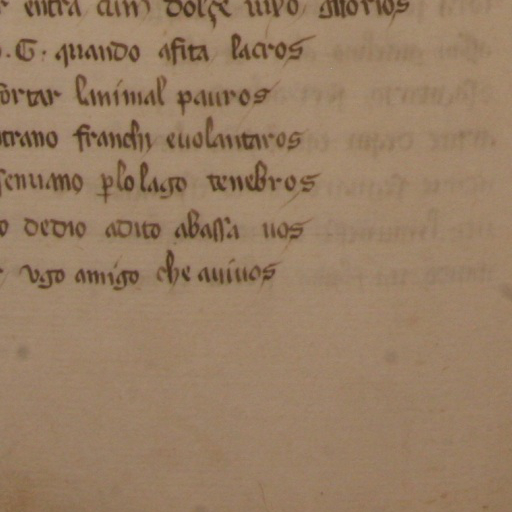 entra cum dolçe uiso gliorios
.G. quando afita lacros
ortar lanimal pauros
trano franchi euolantaros
senuano plo lago tenebros
o dedio aduto abassa uos
ugo amigo che auiuos